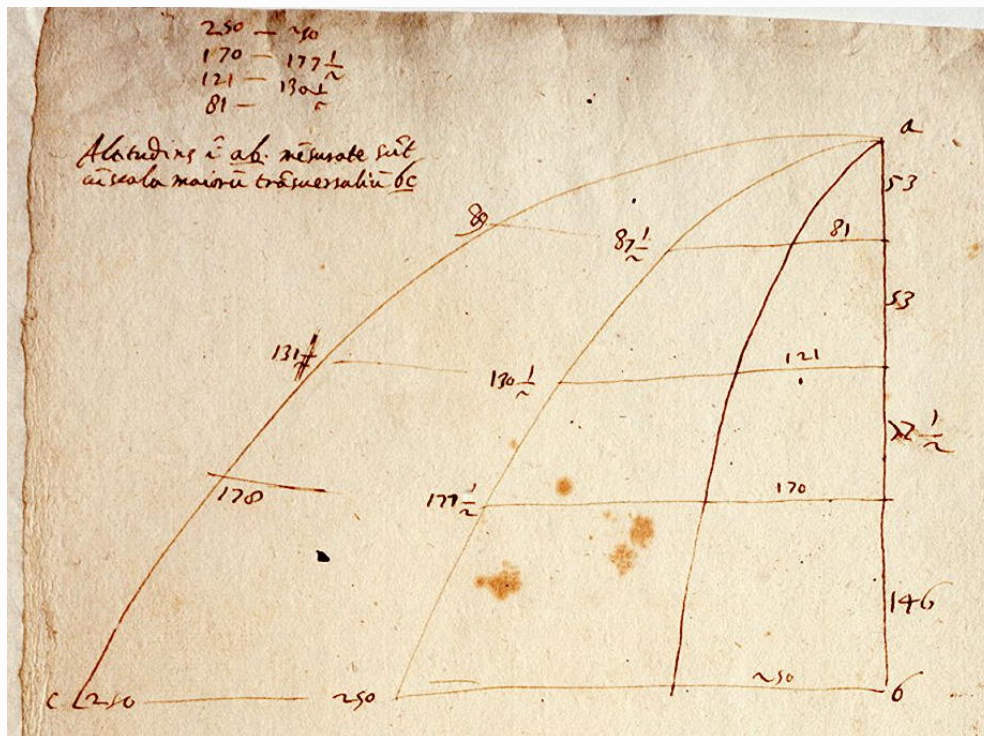 250 — 250
170 — 177 1/2
121 — 130 1/2
81 —
Altitudines ī ab. mēsurate sūt
cū scala maiorū trāsuersaliū bc
a
53
81
87 1/2
53
131
121
130 1/2
1/2
170
177 1/2
178
146
250
b
c 250
250